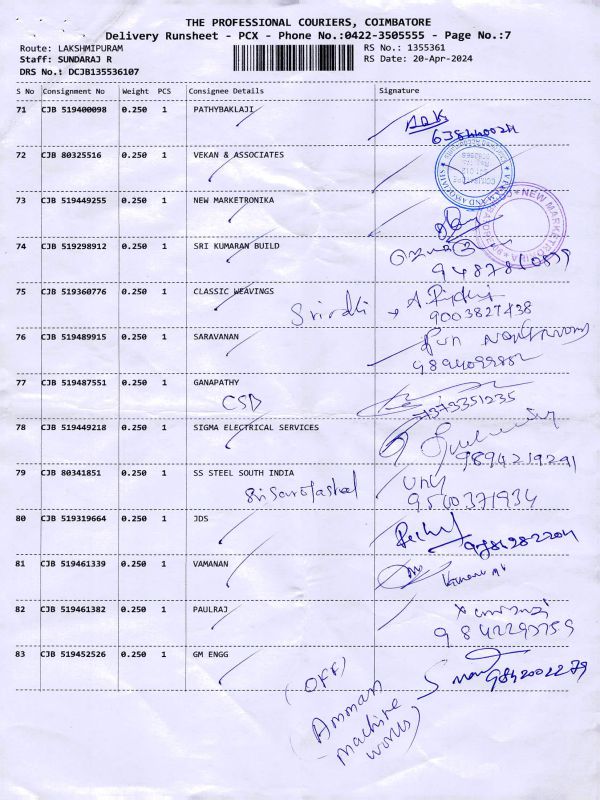 THE PROFESSIONAL COURIERS, COIMBATORE
Delivery Runsheet - PCX - Phone No.:0422-3505555 - Page No.:7
Route: LAKSHMIPURAM RS No.: 1355361
Staff: SUNDARAJ R RS Date: 20-Apr-2024
DRS No.: DCJB135536107
S No Consignment No Weight PCS Consignee Details Signature
71 CJB 519400098 0.250 1 PATHYBAKLAJI
72 CJB 80325516 0.250 1 VEKAN & ASSOCIATES
73 CJB 519449255 0.250 1 NEW MARKETRONIKA
74 CJB 519298912 0.250 1 SRI KUMARAN BUILD
75 CJB 519360776 0.250 1 CLASSIC WEAVINGS
9003827438
76 CJB 519489915 0.250 1 SARAVANAN
77 CJB 519487551 0.250 1 GANAPATHY
CSD 7373351235
78 CJB 519449218 0.250 1 SIGMA ELECTRICAL SERVICES
9894219241
79 CJB 80341851 0.250 1 SS STEEL SOUTH INDIA
9500371934
80 CJB 519319664 0.250 1 JDS
81 CJB 519461339 0.250 1 VAMANAN
82 CJB 519461382 0.250 1 PAULRAJ
83 CJB 519452526 0.250 1 GM ENGG
(OFF)
(Amman
machine
works)